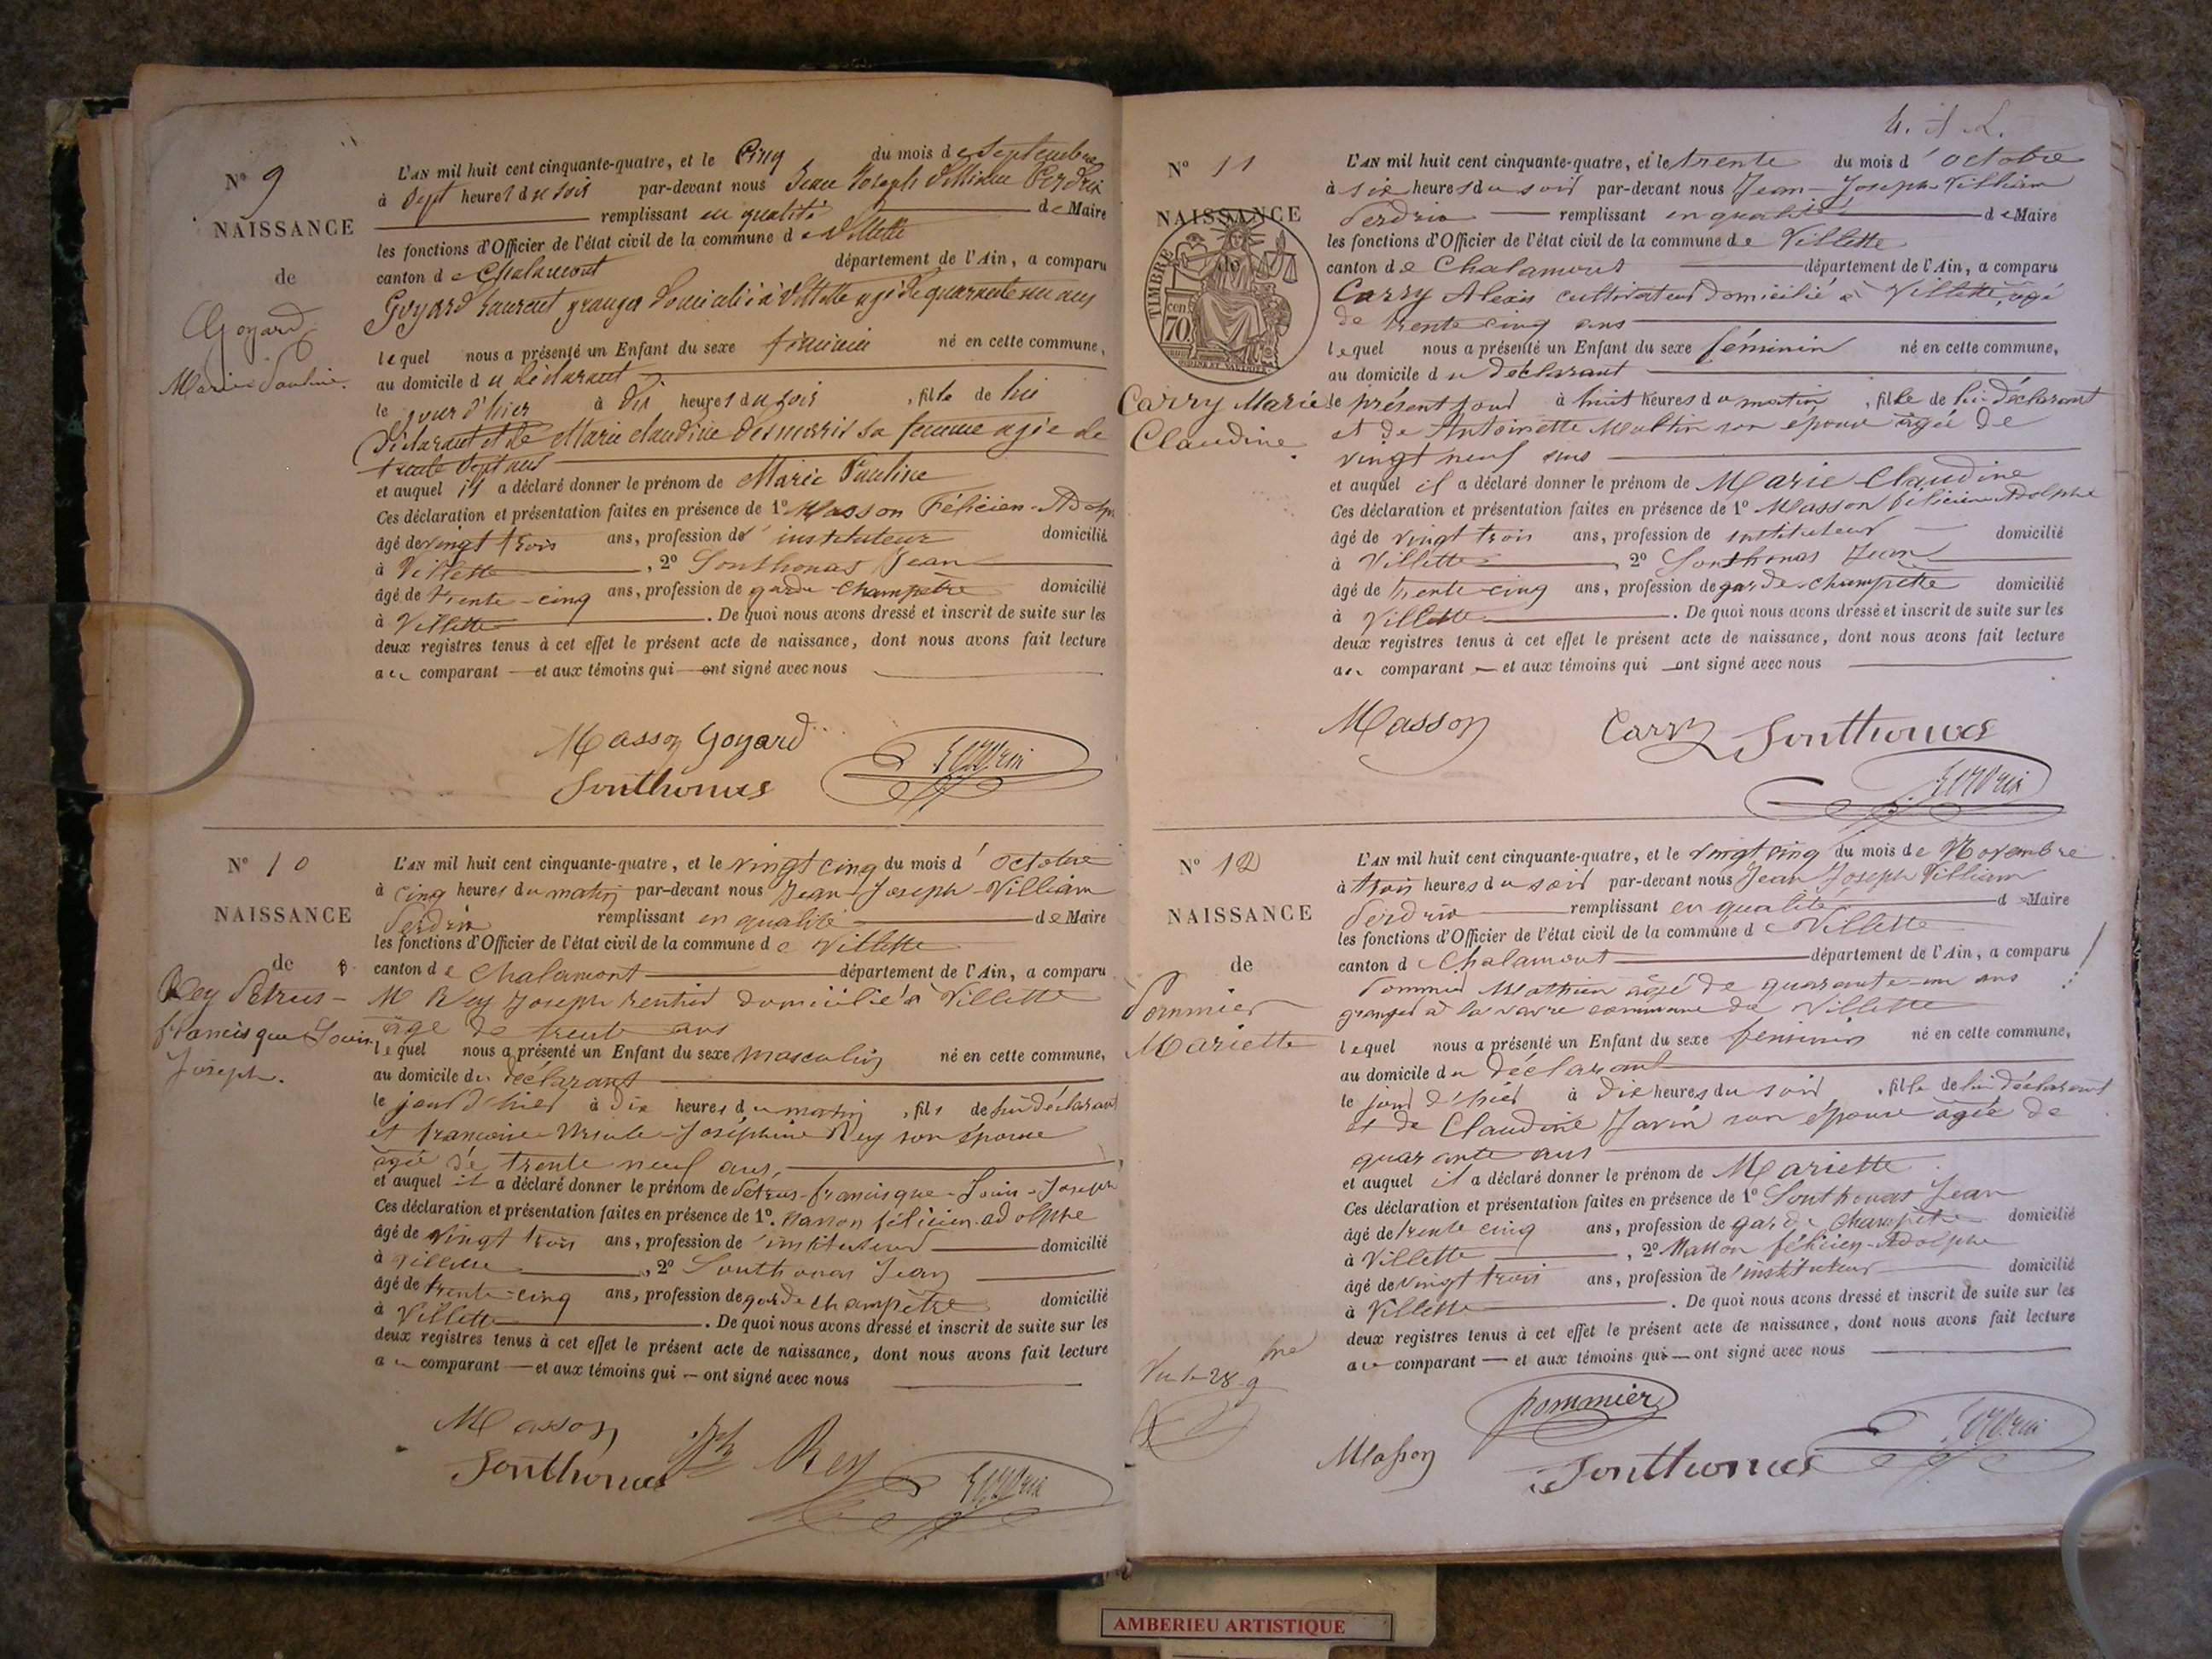 N° 9
NAISSANCE
de
Goyard
Marie Pauline.
L'AN mil huit cent cinquante-quatre, et le Cinq du mois de Septembre
à Sept heures du soir par-devant nous Jean Joseph Villiam Perdrix
remplissant en qualité de Maire
les fonctions d'Officier de l'état civil de la commune de Villette
canton de Chalamont département de l'Ain, a comparu
Goyard Laurent granger domicilié à Villette agé de quarante un ans
lequel nous a présenté un Enfant du sexe féminin né en cette commune,
au domicile du déclarant
le jour d'hier à dix heures du soir, fille de lui
déclarant et de Marie Claudine Desmaris sa femme agée de
trente sept ans
et auquel il a déclaré donner le prénom de Marie Pauline
Ces déclaration et présentation faites en présence de 1° Masson Félicien-Adolp
âgé de vingt trois ans, profession de instituteur domicilié
à Villette, 2° Sonthonas Jean
âgé de trente-cinq ans, profession de garde champêtre domicilié
à Villette. De quoi nous avons dressé et inscrit de suite sur les
deux registres tenus à cet effet le présent acte de naissance, dont nous avons fait lecture
au comparant — et aux témoins qui — ont signé avec nous
Masson Goyard
Sonthonas Perdrix
N° 10
NAISSANCE
de
Rey Petrus-
francisque Louis
Joseph.
L'AN mil huit cent cinquante-quatre, et le vingt cinq du mois d'octobre
à cinq heures du matin par-devant nous Jean-Joseph-Villiam
Perdrix remplissant en qualité de Maire
les fonctions d'Officier de l'état civil de la commune de Villette
canton de Chalamont département de l'Ain, a comparu
M Rey Joseph rentier domicilié à Villette
âgé de trente ans
lequel nous a présenté un Enfant du sexe masculin né en cette commune,
au domicile du déclarant
le jour d'hier à dix heures du matin, fils de lui déclarant
et françoise-Ursule-Joséphine Rey son épouse
agée de trente neuf ans,
et auquel il a déclaré donner le prénom de Petrus-francisque-Louis-Joseph
Ces déclaration et présentation faites en présence de 1°. Masson félicien-adolphe
âgé de vingt trois ans, profession de instituteur domicilié
à Villette, 2° Sonthonas Jean
âgé de trente-cinq ans, profession de garde champêtre domicilié
à Villette. De quoi nous avons dressé et inscrit de suite sur les
deux registres tenus à cet effet le présent acte de naissance, dont nous avons fait lecture
au comparant — et aux témoins qui — ont signé avec nous
Masson
Sonthonas Jph Rey Perdrix
N° 11
NAISSANCE
de
TIMBRE
70 cen
Carry Marie
Claudine
L'AN mil huit cent cinquante-quatre, et le trente du mois d'octobre
à six heures du soir par-devant nous Jean-Joseph-Villiam
Perdrix remplissant en qualité de Maire
les fonctions d'Officier de l'état civil de la commune de Villette
canton de Chalamont département de l'Ain, a comparu
Carry Alexis cultivateur domicilié à Villette, agé
de trente cinq ans
lequel nous a présenté un Enfant du sexe féminin né en cette commune,
au domicile du déclarant
le présent jour à huit heures du matin, fille de lui déclarant
et de Antoinette son épouse âgée de
vingt neuf ans
et auquel il a déclaré donner le prénom de Marie Claudine
Ces déclaration et présentation faites en présence de 1° Masson félicien Adolphe
âgé de vingt trois ans, profession de instituteur domicilié
à Villette, 2° Sonthonas Jean
âgé de trente-cinq ans, profession de garde-champêtre domicilié
à Villette. De quoi nous avons dressé et inscrit de suite sur les
deux registres tenus à cet effet le présent acte de naissance, dont nous avons fait lecture
au comparant — et aux témoins qui — ont signé avec nous
Masson Carry Sonthonas
Perdrix
N° 12
NAISSANCE
de
Pommier
Mariette
L'AN mil huit cent cinquante-quatre, et le vingt cinq du mois de Novembre
à trois heures du soir par-devant nous Jean Joseph Villiam
Perdrix remplissant en qualité de Maire
les fonctions d'Officier de l'état civil de la commune de Villette
canton de Chalamont département de l'Ain, a comparu
Pommier Mathieu agé de quarante-un ans
granger à la commune de Villette
lequel nous a présenté un Enfant du sexe féminin né en cette commune,
au domicile du déclarant
le jour d'hier à dix heures du soir, fille de lui déclarant
et de Claudine Javin son épouse agée de
quarante ans
et auquel il a déclaré donner le prénom de Mariette
Ces déclaration et présentation faites en présence de 1° Sonthonas Jean
âgé de trente cinq ans, profession de garde champêtre domicilié
à Villette, 2° Masson félicien-Adolphe
âgé de vingt trois ans, profession de instituteur domicilié
à Villette. De quoi nous avons dressé et inscrit de suite sur les
deux registres tenus à cet effet le présent acte de naissance, dont nous avons fait lecture
au comparant — et aux témoins qui — ont signé avec nous
Vu le 28 9bre
pommier
Masson Sonthonas Perdrix
AMBERIEU ARTISTIQUE